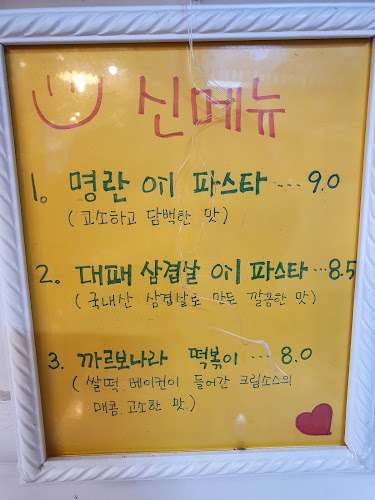 신메뉴
1. 명란 oil 파스타 ... 9.0
(고소하고 담백한 맛)
2. 대패 삼겹살 oil 파스타 ... 8.5
(국내산 삼겹살로 만든 깔끔한 맛)
3. 까르보나라 떡볶이 ... 8.0
(쌀떡 베이컨이 들어간 크림소스의
매콤 고소한 맛.)